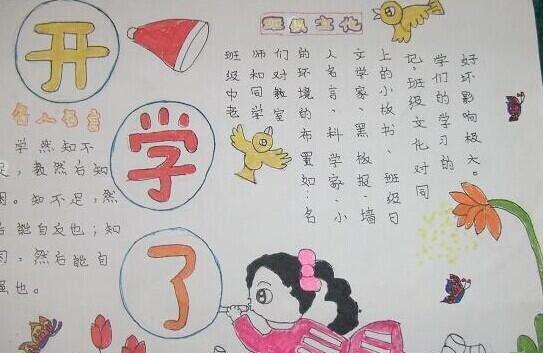 开
学
了
名人名言
学然知不
足，教然后知
困。知不足，然
后能自文也；知
困，然后能自
强也。
班级文化
班级中老
师和同学
们对教室
的环境的布置如：名
人名言、科学家、小
文学家、黑板报、墙
上的小板书、班级日
记，班级文化对同
学们的学习的
好坏影响极大。